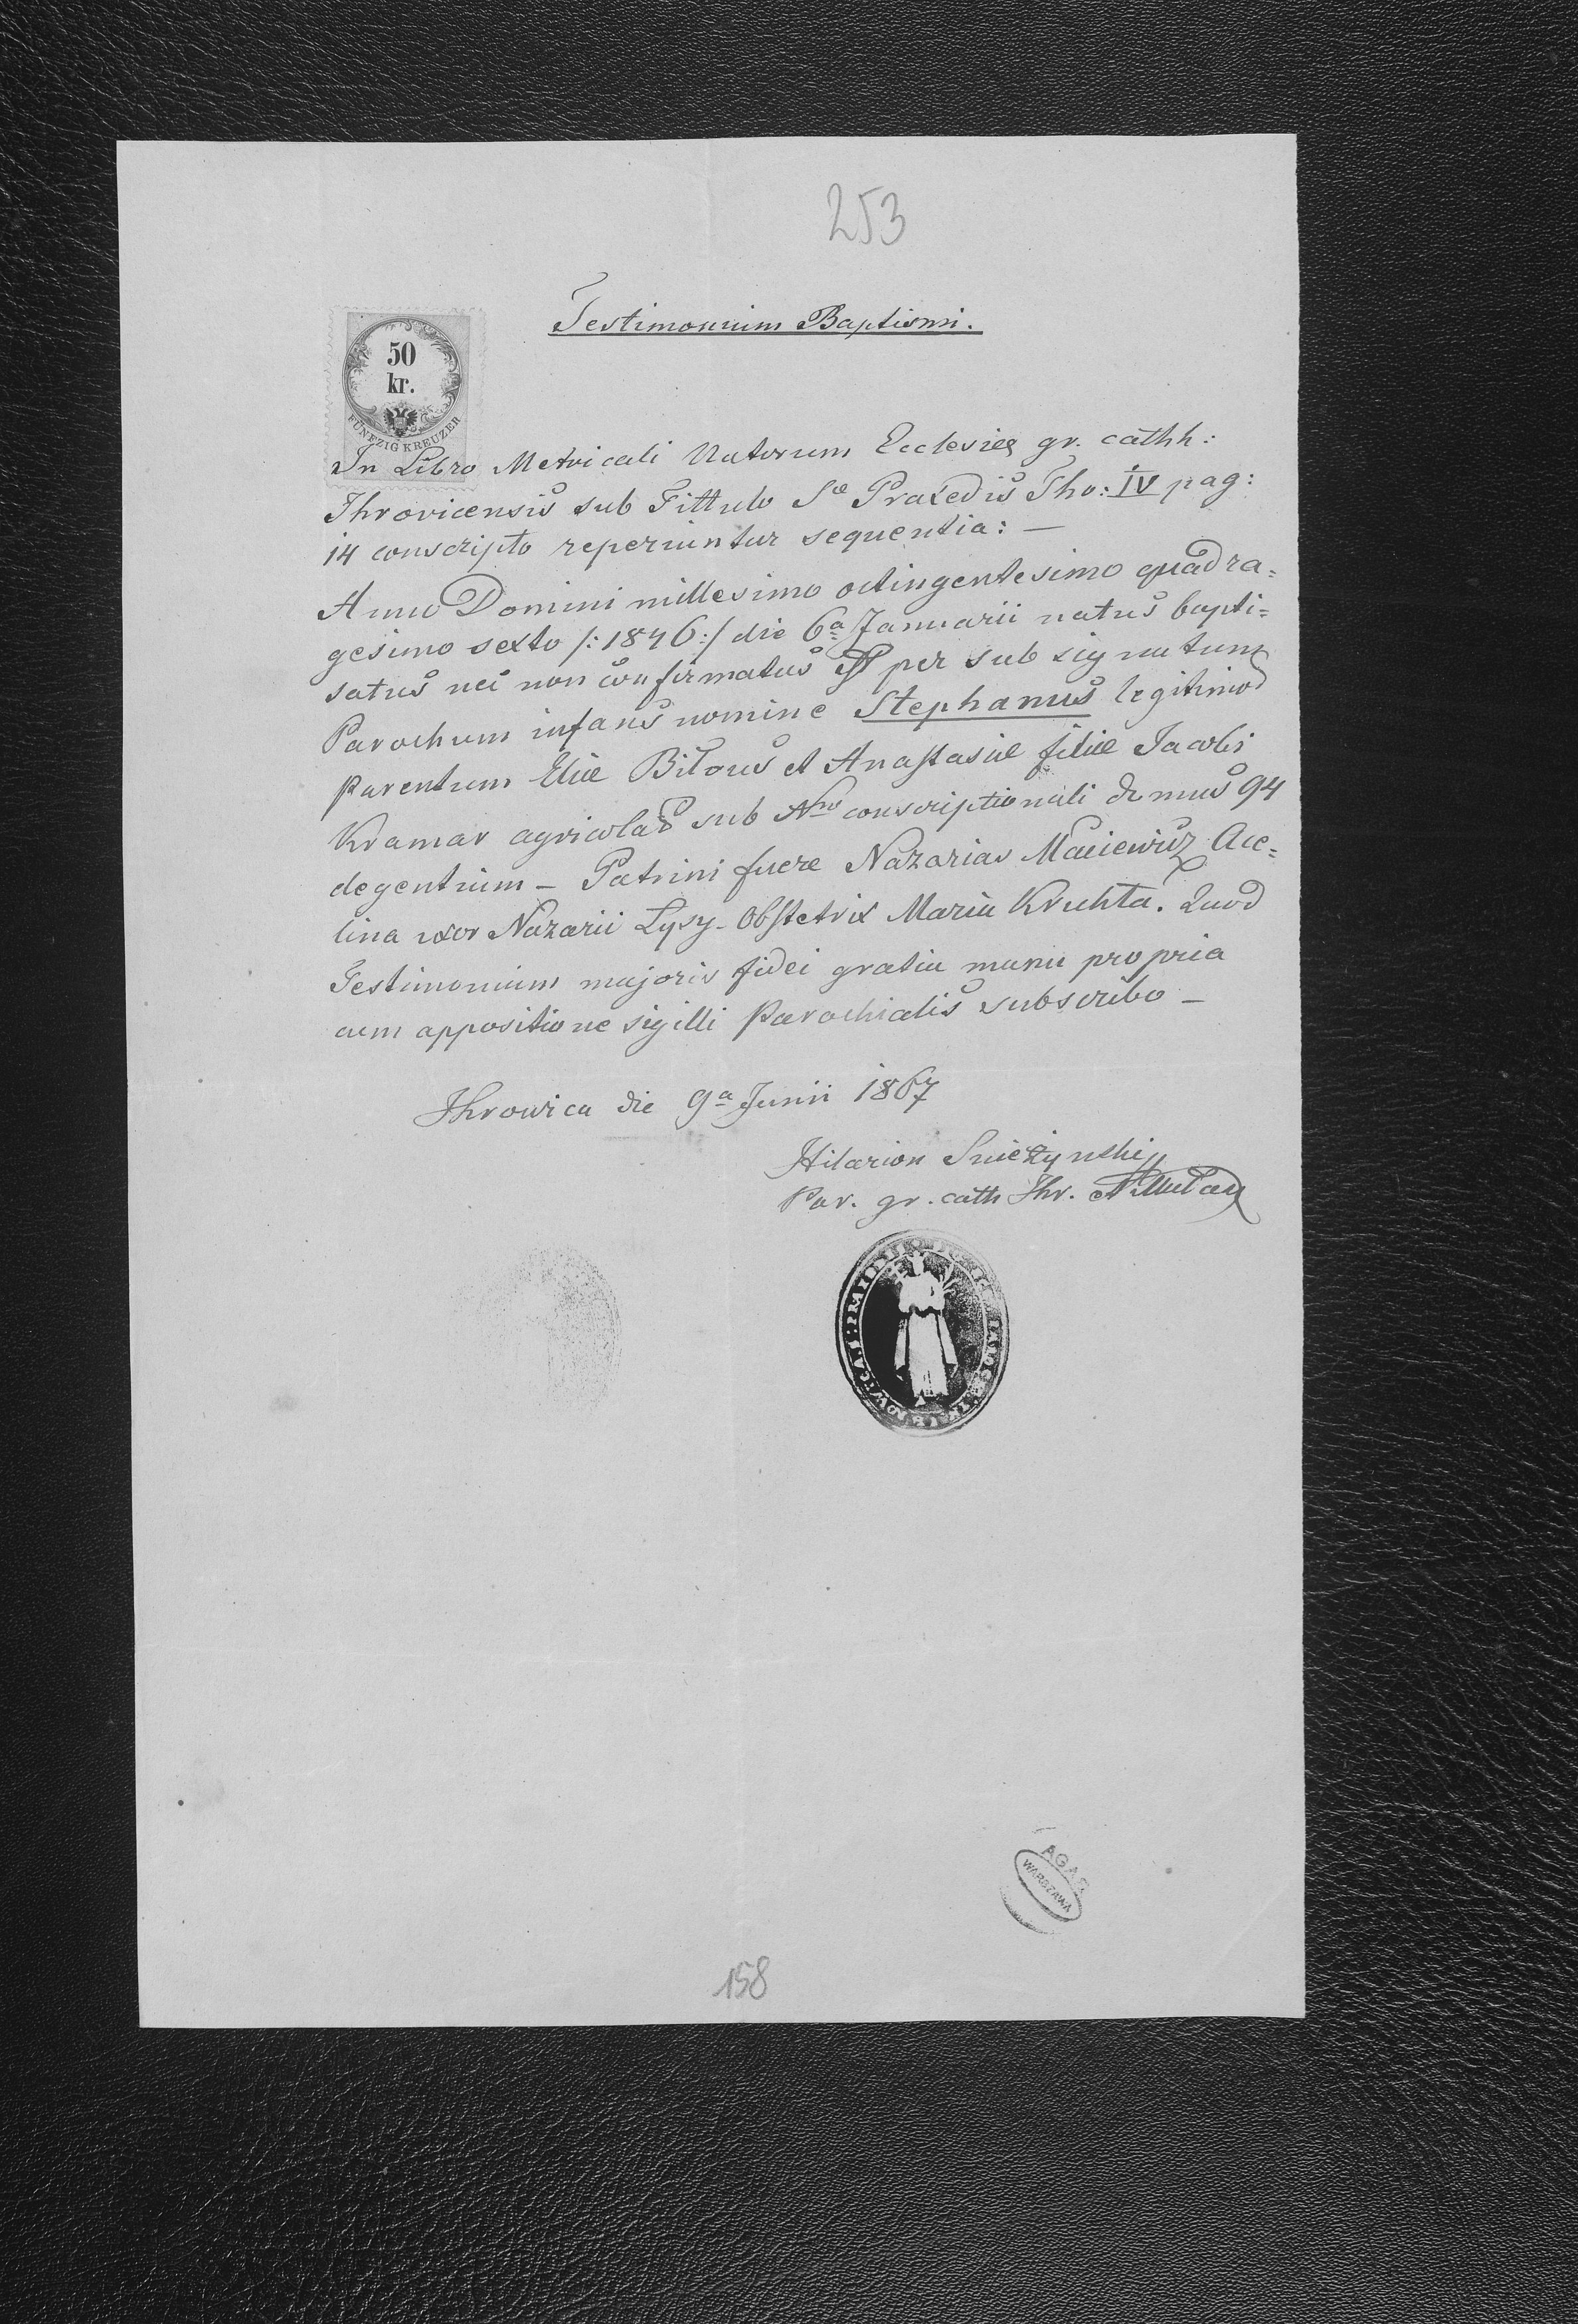 253
Testimonium Baptismi.
50
kr.
FÜNFZIG KREUZER
In Libro Metricali Natorum Ecclesiæ gr. cathh:
Ihrovicensis sub Tittulo Sae Praxedis Tho: IV pag:
14 conscripto reperiuntur sequentia: —
Anno Domini millesimo octingentesimo quadra=
gesimo sexto /:1846:/ die 6a Januarii natus bapti=
satus nec non confirmatus est per subsignatum
Parochum infans nomine Stephanus legitimo
parentum Eliæ Biłous et Anastasiæ filiæ Jacobi
Kramar agricolas sub Nro conscriptionali domus 94
degentium – Patrini fuere Nazarias Maciewicz Ace=
lina uxor Nazarii Łysy – Obstetrix Maria Kruhta. Quod
Testimonium majoris fidei gratia manu propria
cum appositione sigilli Parochialis subscribo –
Ihrowica die 9a Junii 1867
Hilarion Snieżynskij
Par. gr. cath Ihr.
AGAD
WARSZAWA
158